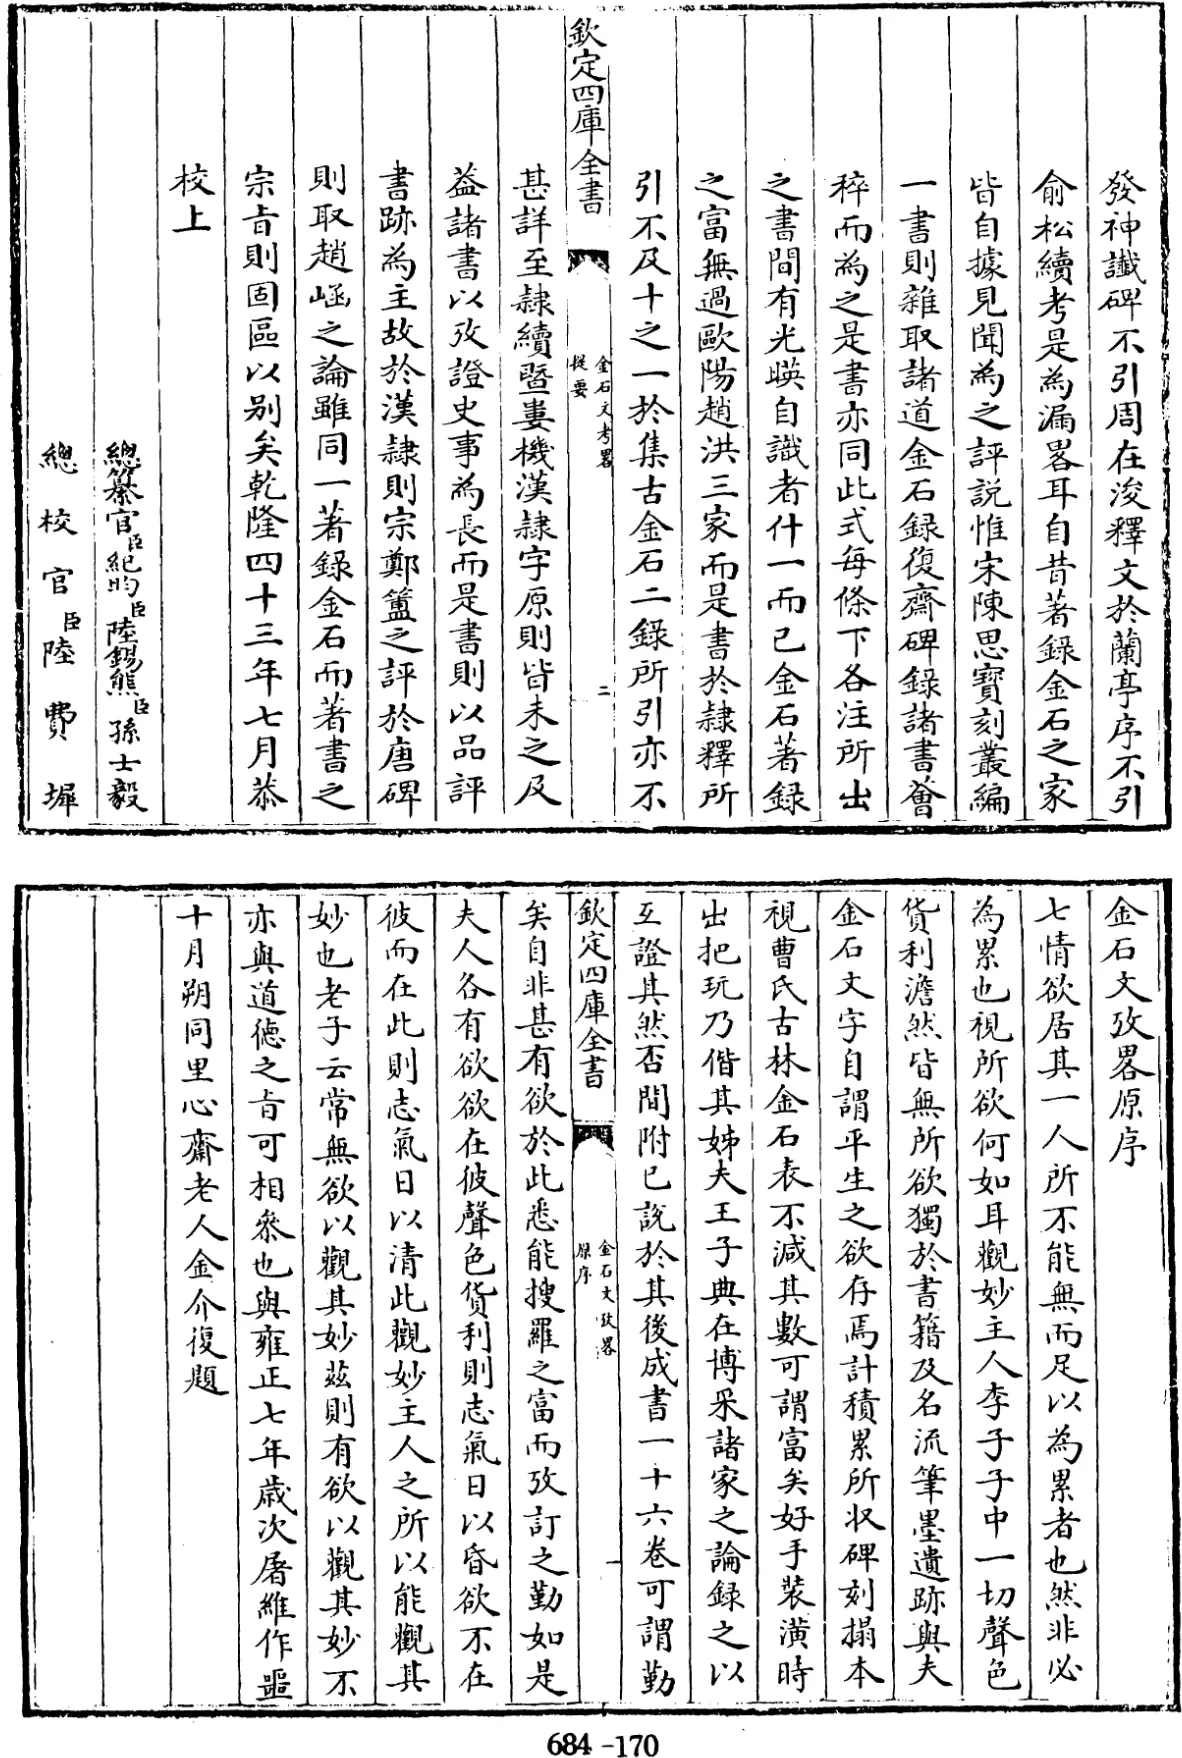 發神讖碑不引周在浚釋文於蘭亭序不引
俞松續考是為漏畧耳自昔著錄金石之家
皆自據見聞為之評説惟宋陳思寶刻叢編
一書則雜取諸道金石録復齋碑録諸書薈
稡而為之是書亦同此式每條下各注所出
之書間有光暎自識者什一而已金石著録
之富無過歐陽趙洪三家而是書於隷釋所
引不及十之一於集古金石二錄所引亦不
欽定四庫全書
金石文考畧
提要
二
甚詳至隷續暨婁機漢隷字原則皆未之及
蓋諸書以攷證史事為長而是書則以品評
書跡為主故於漢隷則宗鄭簠之評於唐碑
則取趙崡之論雖同一著錄金石而著書之
宗旨則固區以别矣乾隆四十三年七月恭
校上
總纂官臣紀昀臣陸錫熊臣孫士毅
總校官臣陸費墀
金石文攷畧原序
七情欲居其一人所不能無而足以為累者也然非必
為累也視所欲何如耳觀妙主人李子子中一切聲色
貨利澹然皆無所欲獨於書籍及名流筆墨遺跡與夫
金石文字自謂平生之欲存焉計積累所収碑刻搨本
視曹氏古林金石表不減其數可謂富矣好手裝潢時
出把玩乃偕其姊夫王子典在博采諸家之論録之以
互證其然否間附已説於其後成書一十六卷可謂勤
欽定四庫全書
金石文攷畧
原序
一
矣自非甚有欲於此悉能搜羅之富而攷訂之勤如是
夫人各有欲欲在彼聲色貨利則志氣日以昏欲不在
彼而在此則志氣日以清此觀妙主人之所以能觀其
妙也老子云常無欲以觀其妙兹則有欲以觀其妙不
亦與道德之旨可相叅也與雍正七年歳次屠維作噩
十月朔同里心齋老人金介復題
684-170